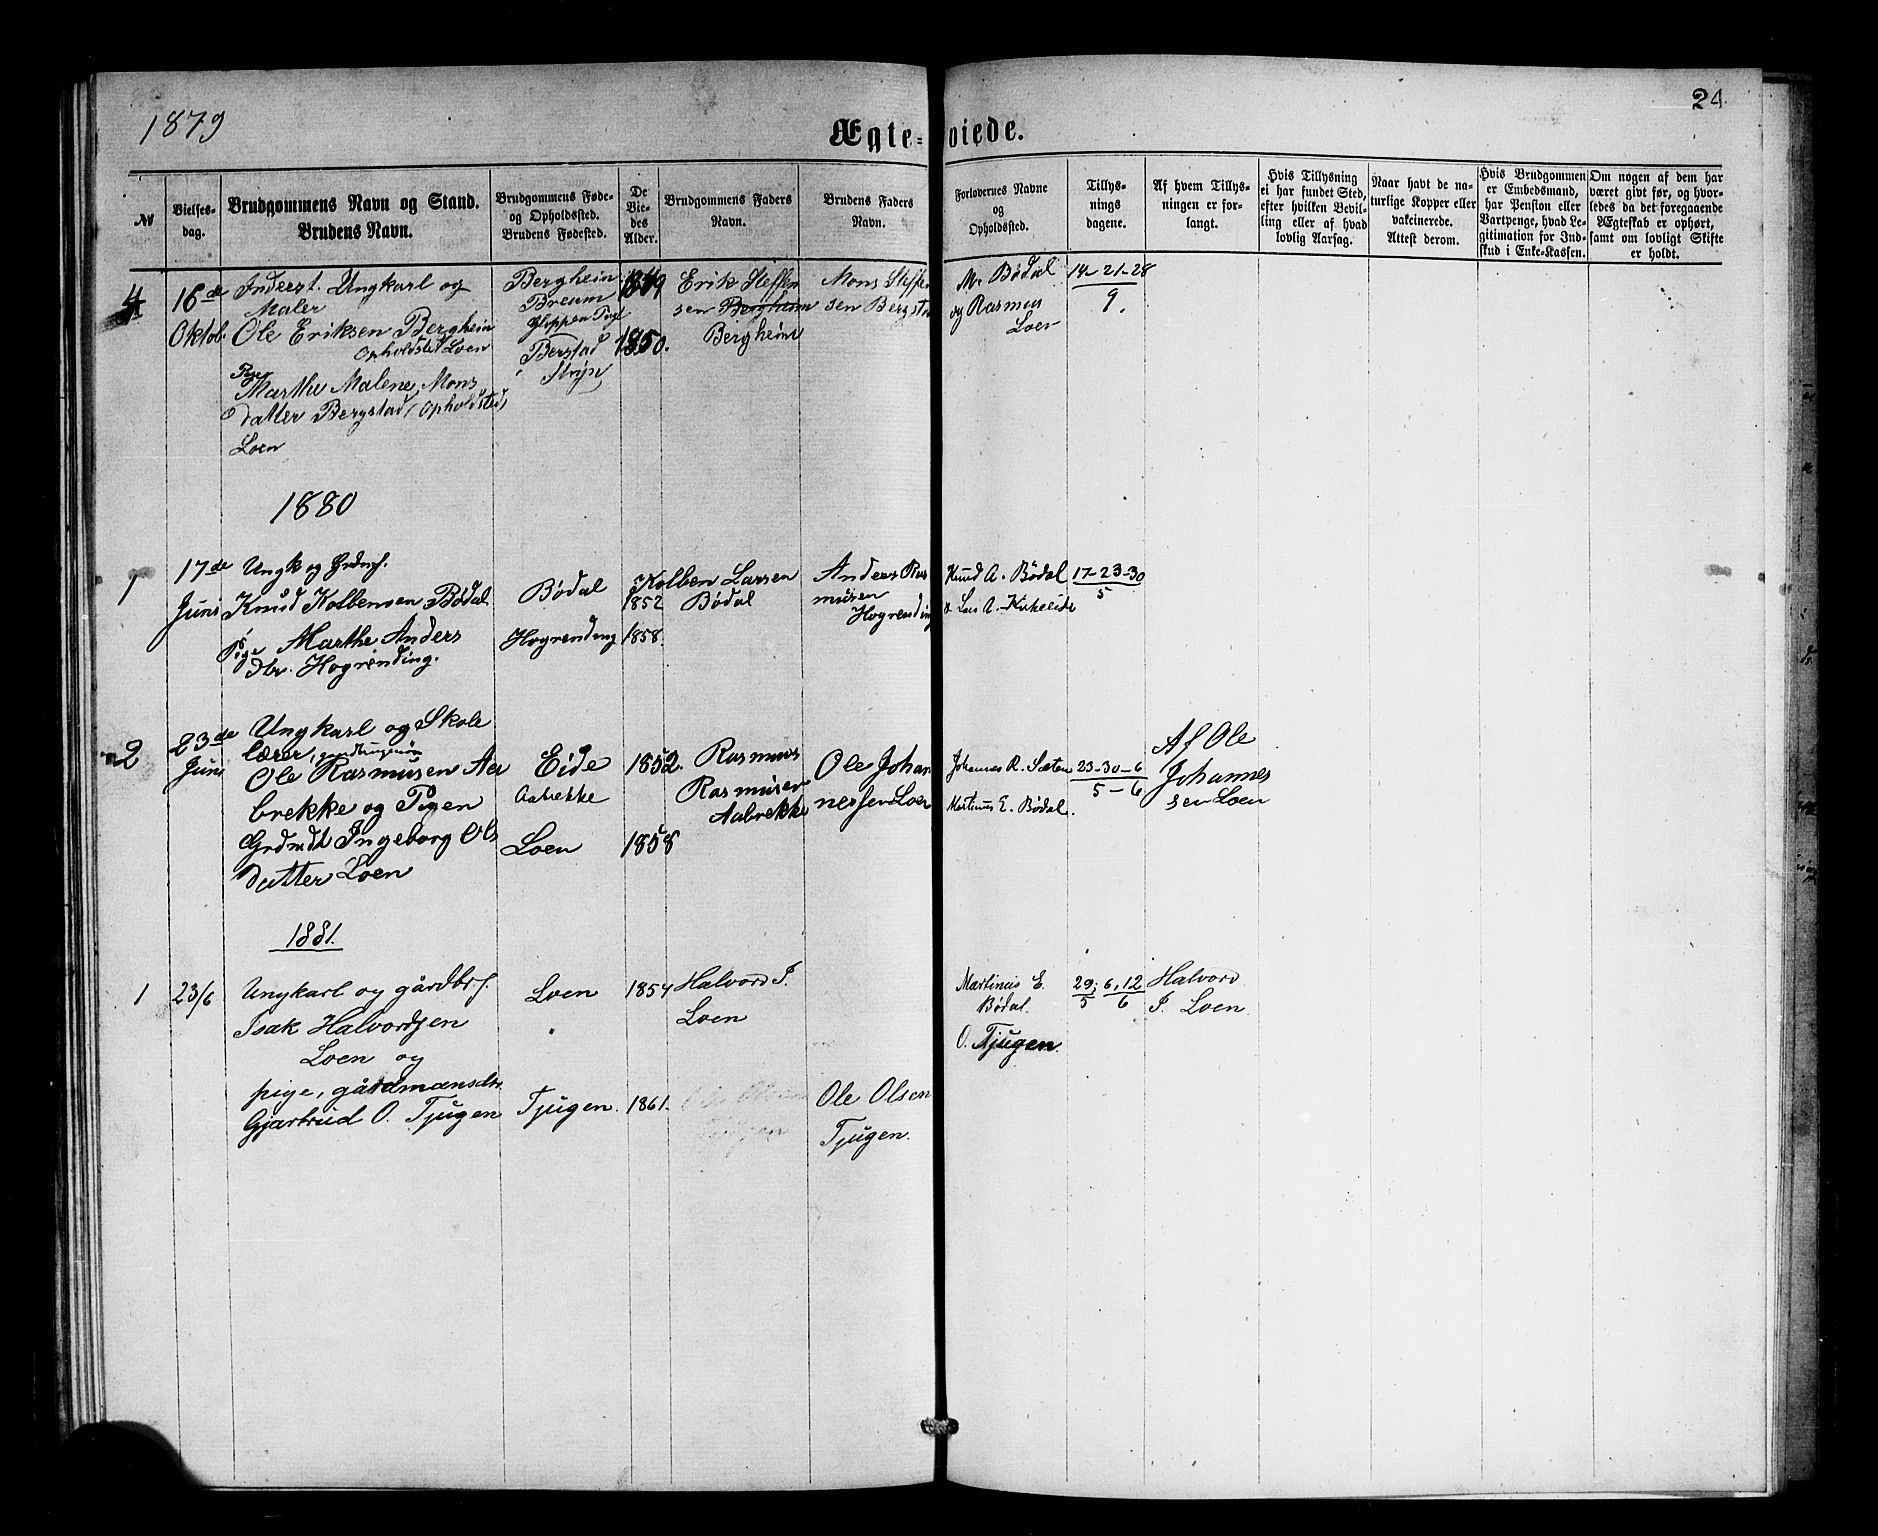 1879
24
Ægte=
viede.
№
Vielses-
dag.
Brudgommens Navn og Stand.
Brudens Navn.
Brudgommens Føde-
og Opholdssted.
Brudens Fødested.
De
Vie-
des
Alder.
Brudgommens Faders
Navn.
Brudens Faders
Navn.
Forlovernes Navne
og
Opholdssted.
Tillys-
nings
dagene.
Af hvem Tillys-
ningen er for-
langt.
Hvis Tillysning
ei har fundet Sted,
efter hvilken Bevil-
ling eller af hvad
lovlig Aarsag.
Naar havt de na-
turlige Kopper eller
vakcinerede.
Attest derom.
Hvis Brudgommen
er Embedsmand,
har Pension eller
Vartpenge, hvad Le-
gitimation for Ind-
skud i Enke-Kassen.
Om nogen af dem har
været givt før, og hvor-
ledes da det foregaaende
Ægteskab er ophørt,
samt om lovligt Skifte
er holdt.
4
16de
Oktob.
Inderst. Ungkarl og
Maler
Ole Eriksen Bergheim
Opholdsted Loen
Pige
Marthe Malene Mons
datter Bergstad (Opholdsted)
Loen
Bergheim
Breum
Gloppen Pgd
Berstad
Stryn
1849
1850.
Erik Steffen
sen Bergheim
Bergheim
Mons Steffen
sen Bergstad
M. Bødal
og Rasmus
Loen
14-21-28
9.
1880
1
17de
Juni
Ungk og Grdmf.
Knud Kolbensen Bødal
Pige Marthe Anders
dtr. Hogrending.
Bødal
Hogrending
1852
1858.
Kolben Larsen
Bødal
Anders Ras
musen
Hogrending
Knud A. Bødal
& Lars A. Kirkeeide
17-23-30
5
2
23de
Juni
Ungkarl og Skole
lærer, gaardbrugersøn
Ole Rasmusen Aa
brekke og Pigen
Grdmdt Ingeborg Ols
datter Loen
Eide
Aabrekke
Loen
1852.
1858
Rasmus
Rasmusen
Aabrekke
Ole Johan
nessen Loen
Johannes R. Sæten
Martinus E. Bødal.
23-30-6
5-6
Af Ole
Johannes
sen Loen
1881.
1
23/6
Ungkarl og gårdbrf.
Isak Halvordsen
Loen og
pige, gårdmansdtr.
Gjartrud O. Tjugen
Loen
Tjugen.
1854
1861.
Halvord I.
Loen
Ole Olsen
Tjugen.
Martinus E.
Bødal.
O. Tjugen.
29; 6, 12
5 6
Halvord
I. Loen.